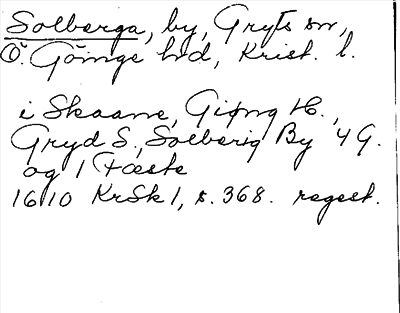 Solberga, by, Gryts sn,
Ö. Göinge hd, Krist. l.
i Skaane, Giøng H.,
Gryd S., Solberig By 4 G.
og 1 Fæste
1610 KrSk 1, s. 368. regest.